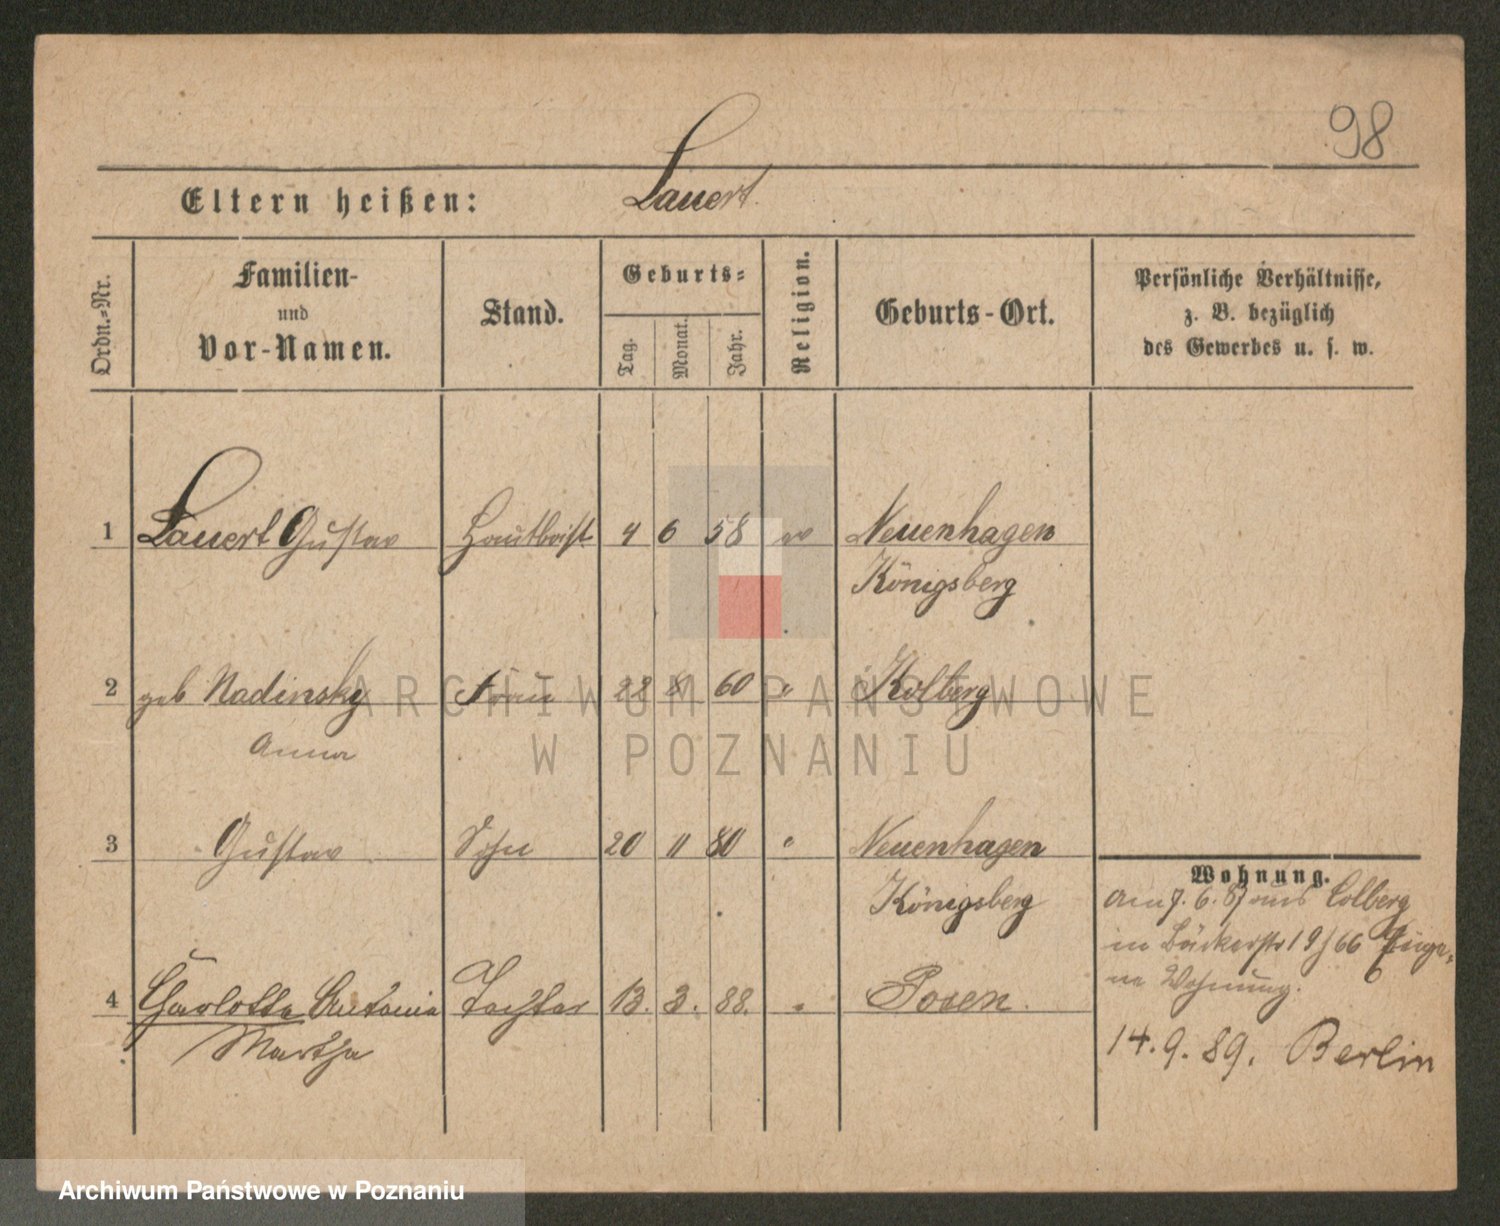 98
Eltern heißen: Lauert
Ordn.-Nr.
Familien-
und
Vor-Namen.
Stand.
Geburts-
Tag.
Monat.
Jahr.
Religion.
Geburts-Ort.
Persönliche Verhältnisse,
z. B. bezüglich
des Gewerbes u. s. w.
1 Lauert Gustav Hautboist 4 6 58 ev Neuenhagen
Königsberg
2 geb Nadinsky Frau 22 8 60 " Kolberg
Anna
3 Gustav Sohn 20 11 80 " Neuenhagen
Königsberg
4 Charlotte Antonie Tochter 13. 3. 88. " Posen.
Martha
Wohnung.
am 7. 6. 87 aus Colberg
in Bäckerstr 19/66 Eige-
ne Wohnung.
14. 9. 89. Berlin
ARCHIWUM PAŃSTWOWE
W POZNANIU
Archiwum Państwowe w Poznaniu